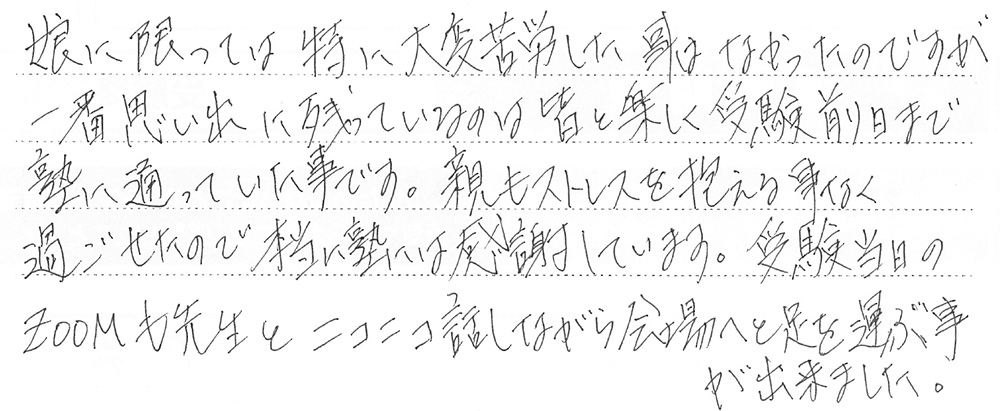 娘に限っては特に大変苦労した事はなかったのですが
一番思い出に残っているのは皆と楽しく受験前日まで
塾に通っていた事です。親もストレスを抱える事なく
過ごせたので本当に塾には感謝しています。受験当日の
ZOOMも先生とニコニコ話しながら会場へと足を運ぶ事
が出来ました。